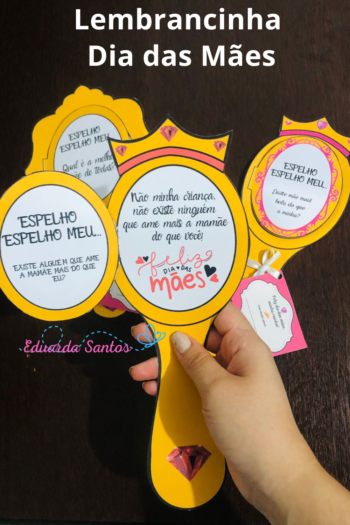 Lembrancinha
Dia das Mães
ESPELHO
ESPELHO MEU...
Qual é a melhor
mãe de todas?
ESPELHO
ESPELHO MEU...
EXISTE ALGUEM QUE AME
A MAMÃE MAIS DO QUE
EU?
Não minha criança,
não existe ninguém
que ame mais a mamãe
do que você!
feliz
DIA DAS
mães
ESPELHO
ESPELHO MEU...
Existe mãe mais
bela do que
a minha?
Eduarda Santos